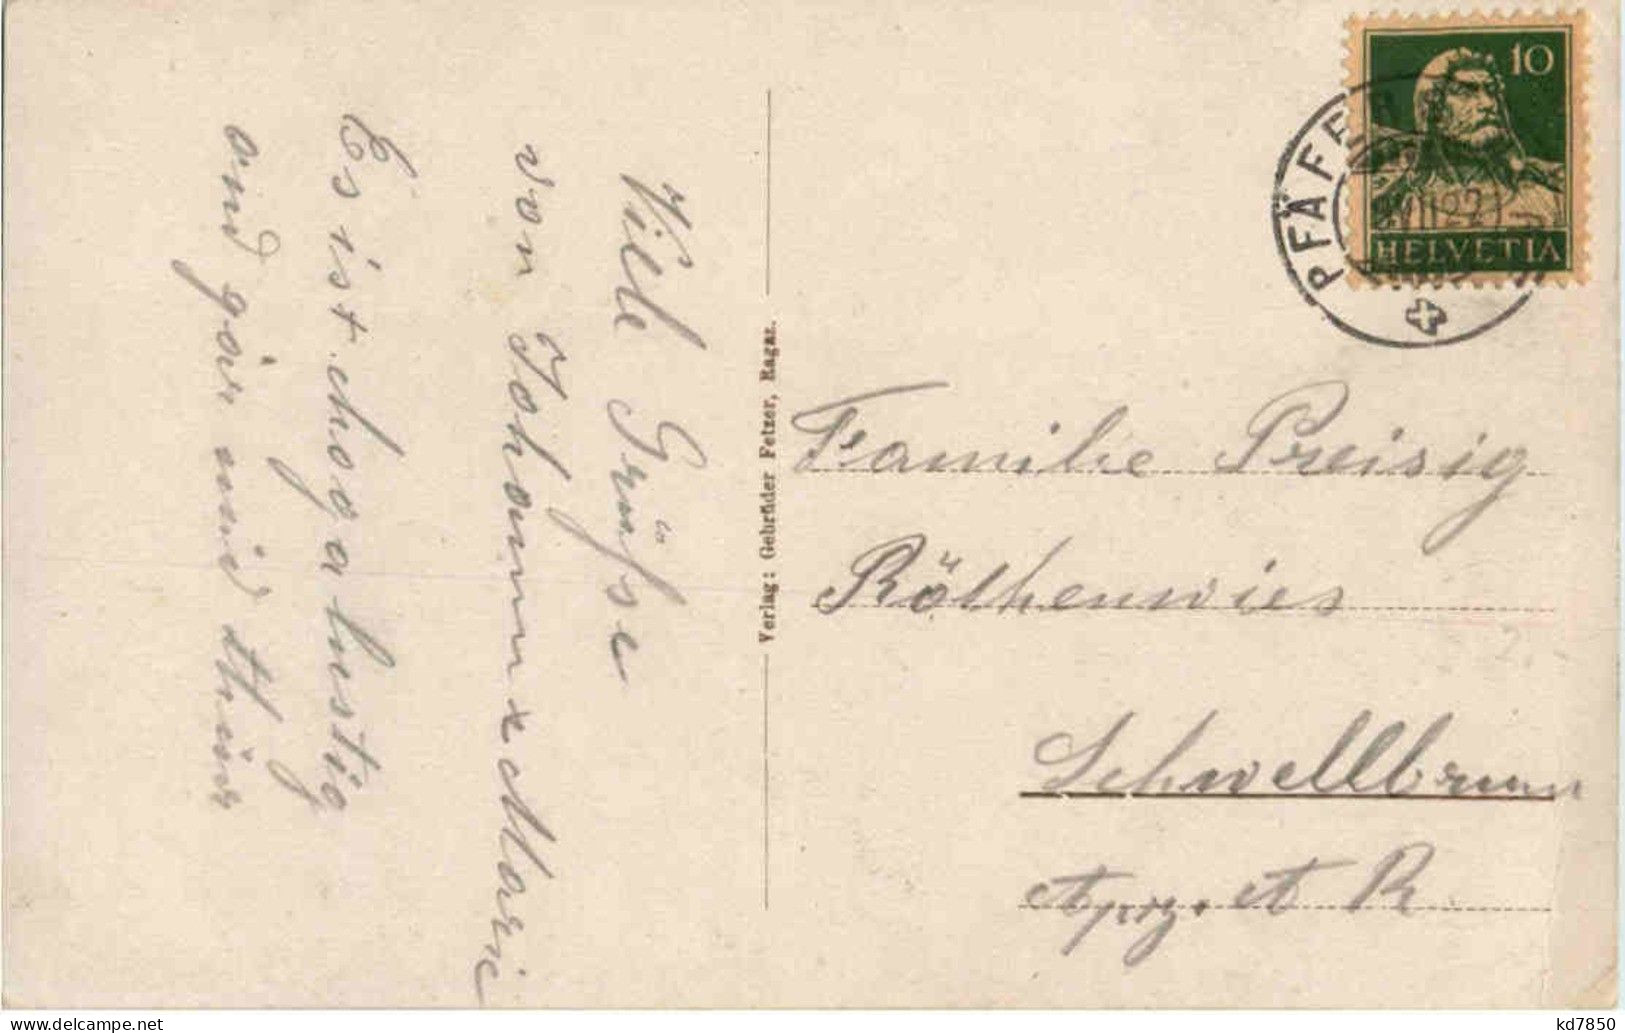 Viele Grüsse
von Johann & Marie
Es ist choga lustig
ond gär nüd thüür
Verlag: Gebrüder Fetzer, Ragaz.
10
HELVETIA
PFÄFERS
Familie Preisig
Röthenwies
Schwellbrunn
Apz. A. R.
kd7850